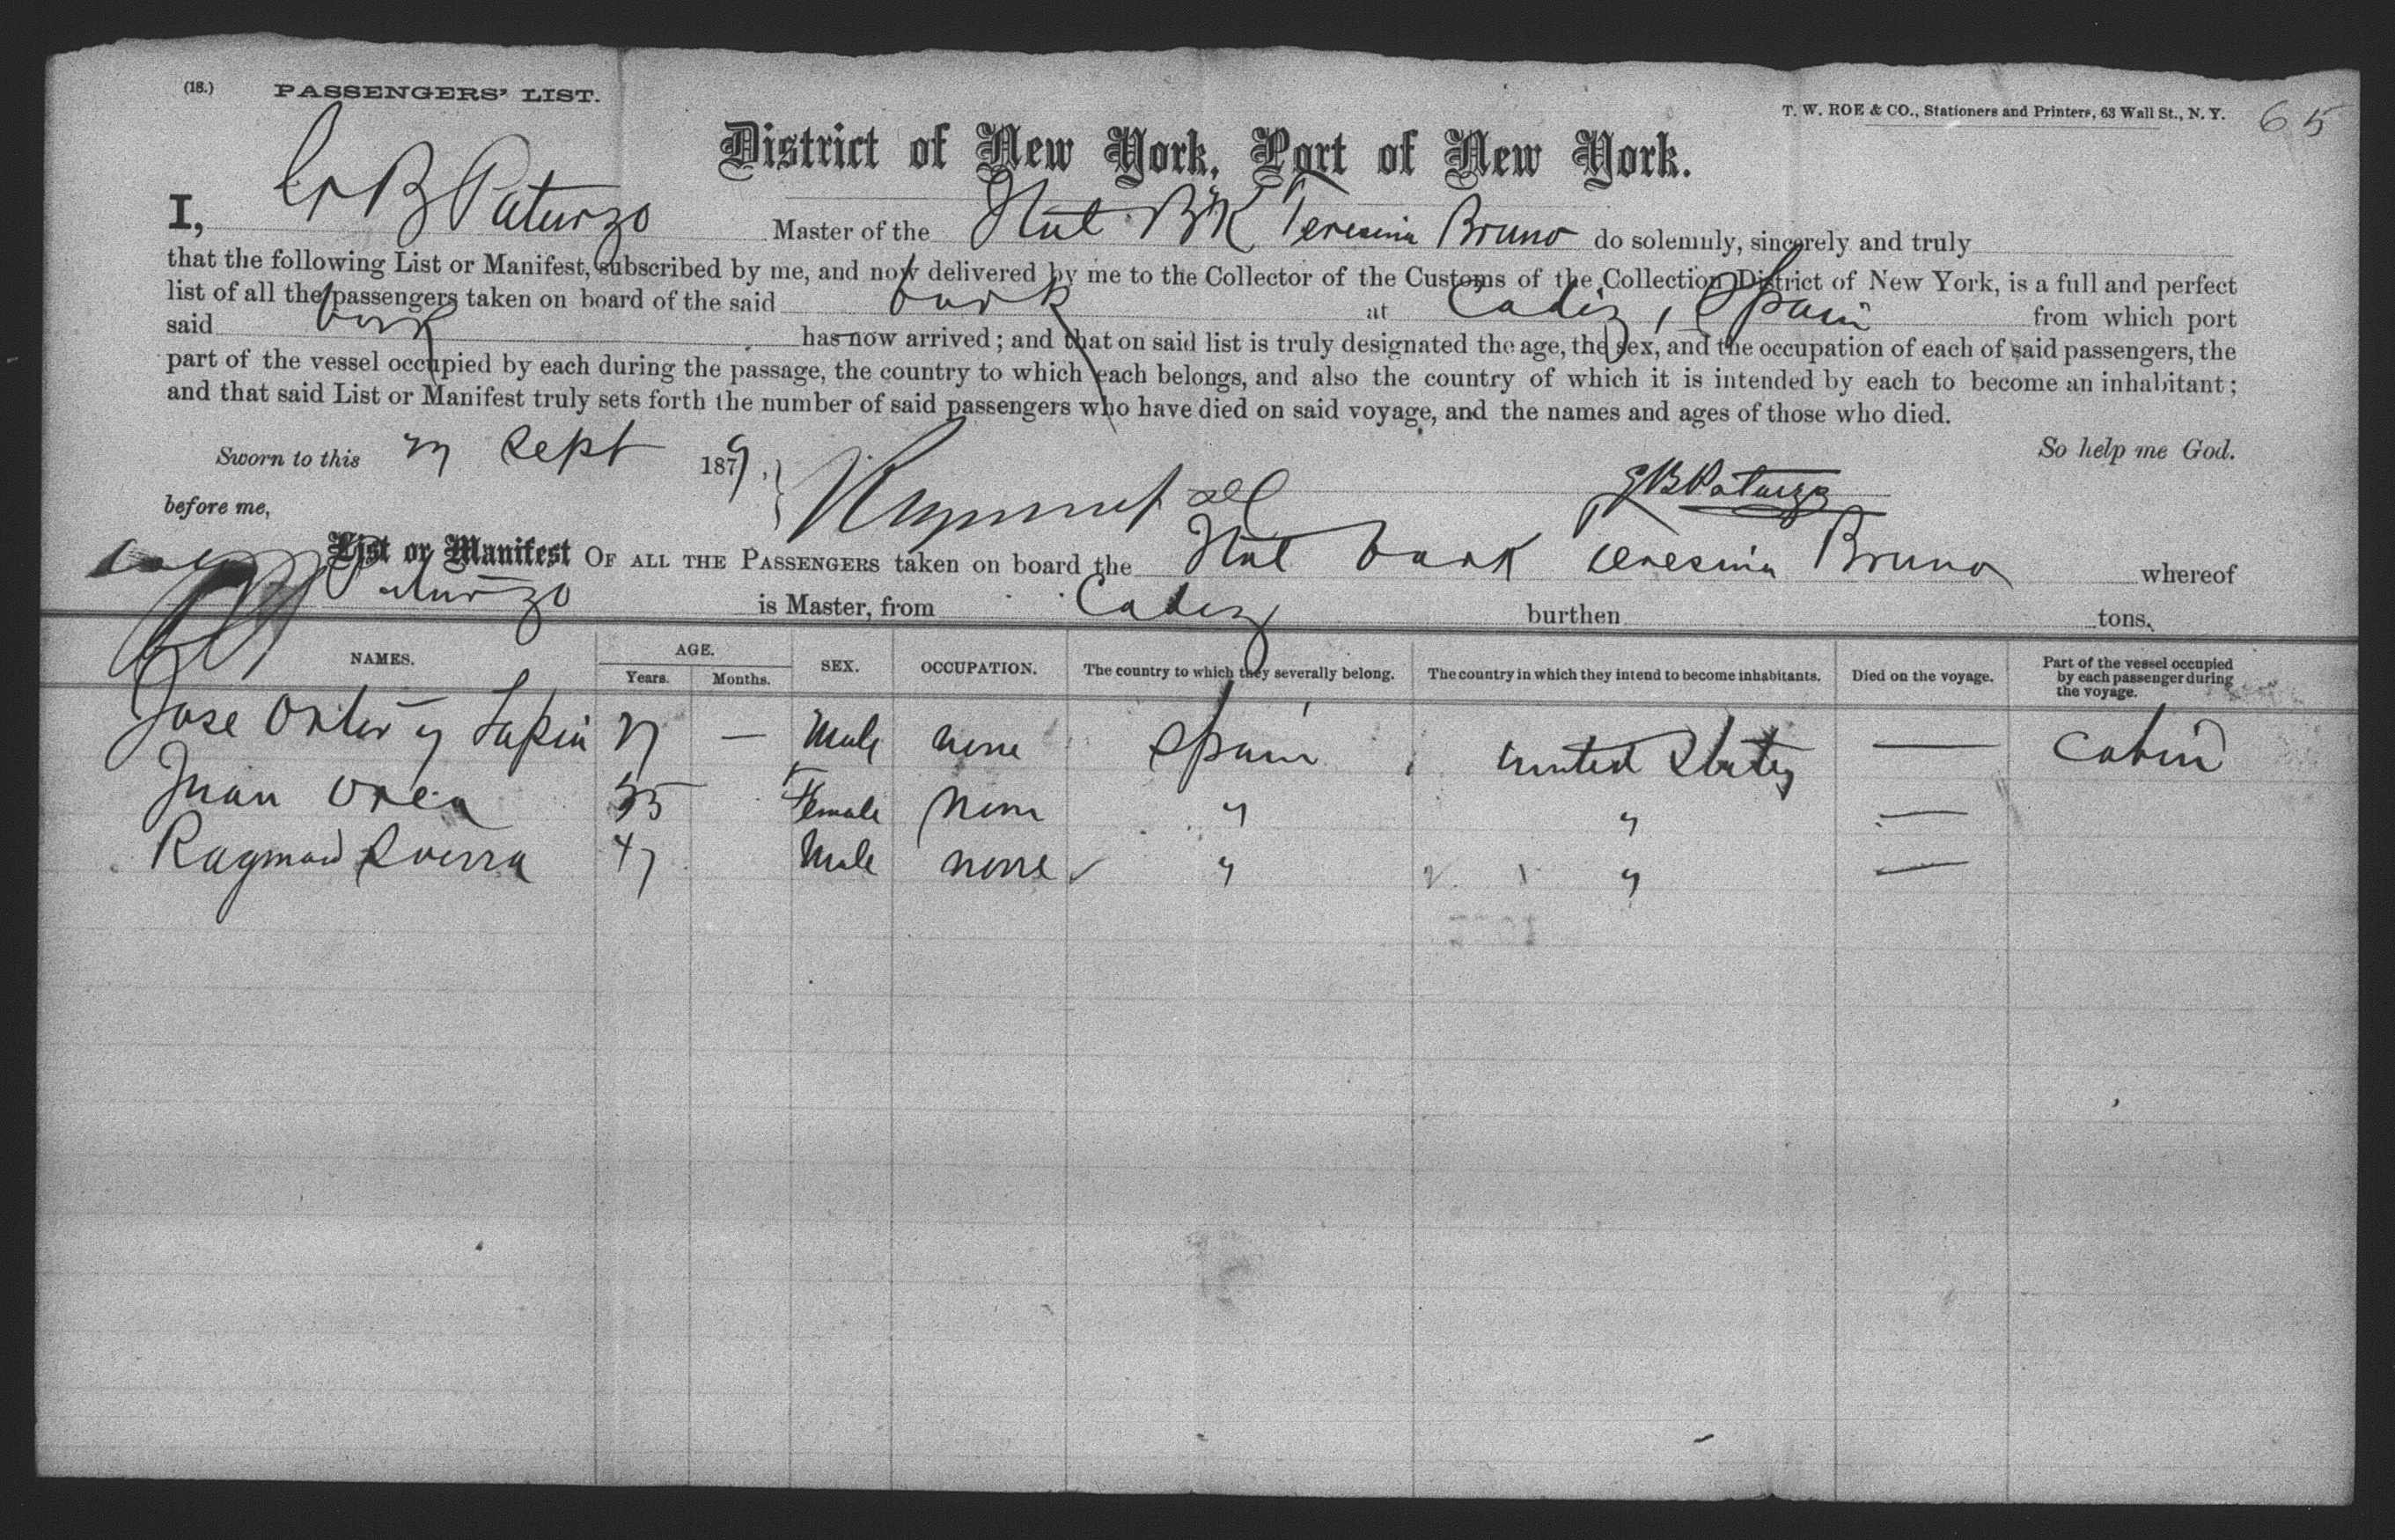 (18.) PASSENGERS' LIST.
T. W. ROE & CO., Stationers and Printers, 63 Wall St., N. Y. 65
District of New York, Port of New York.
I, G B Paturzo Master of the Ital Bk Teresina Bruno do solemnly, sincerely and truly
that the following List or Manifest, subscribed by me, and now delivered by me to the Collector of the Customs of the Collection District of New York, is a full and perfect
list of all the passengers taken on board of the said bark at Cadiz, Spain from which port
said bark has now arrived; and that on said list is truly designated the age, the sex, and the occupation of each of said passengers, the
part of the vessel occupied by each during the passage, the country to which each belongs, and also the country of which it is intended by each to become an inhabitant;
and that said List or Manifest truly sets forth the number of said passengers who have died on said voyage, and the names and ages of those who died.
So help me God.
Sworn to this Sept 1879
G B Paturzo
before me,
List or Manifest OF ALL THE PASSENGERS taken on board the Ital bark Teresina Bruno whereof
Paturzo is Master, from Cadiz burthen tons.
NAMES. AGE. Years. Months. SEX. OCCUPATION. The country to which they severally belong. The country in which they intend to become inhabitants. Died on the voyage. Part of the vessel occupied by each passenger during the voyage.
Jose y — Male none Spain United States — Cabin
Juan Female None " " —
47 Male none " " —